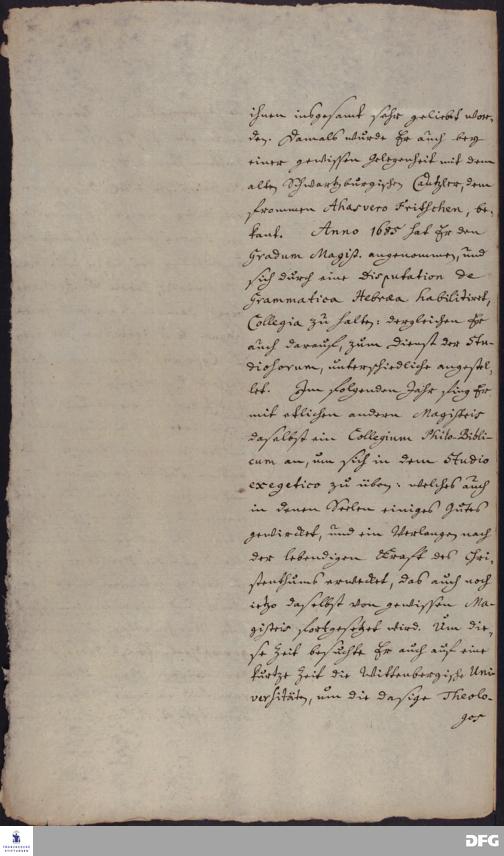 ihnen insgesamt sehr geliebt wor-
den. Damals wurde Er auch bey
einer gewissen Gelegenheit mit dem
alten Schwartzburgischen Cantzler, dem
frommen Ahasvero Fritschen, be-
kant. Anno 1685 hat Er den
Gradum Magist. angenommen, und
sich durch eine disputation de
Grammatica Hebræa habilitiret,
Collegia zu halten: dergleichen Er
auch darauf, zum Dienst der Stu-
diosorum, unterschiedliche angestel-
let. Im folgenden Jahr fing Er
mit etlichen andern Magistris
daselbst ein Collegium Philo-Bibli-
cum an, um sich in dem Studio
exegetico zu üben: welches auch
in denen Seelen einiges Gutes
gewircket, und ein Verlangen nach
der lebendigen Kraft des Chri-
stenthums erwecket, das auch noch
ietzo daselbst von gewissen Ma-
gistris fortgesetzet wird. Um die-
se Zeit besuchte Er auch auf eine
kurtze Zeit die Wittenbergische Uni-
versitäten, um die dasige Theolo-
gos
FRANCKESCHE
STIFTUNGEN
DFG